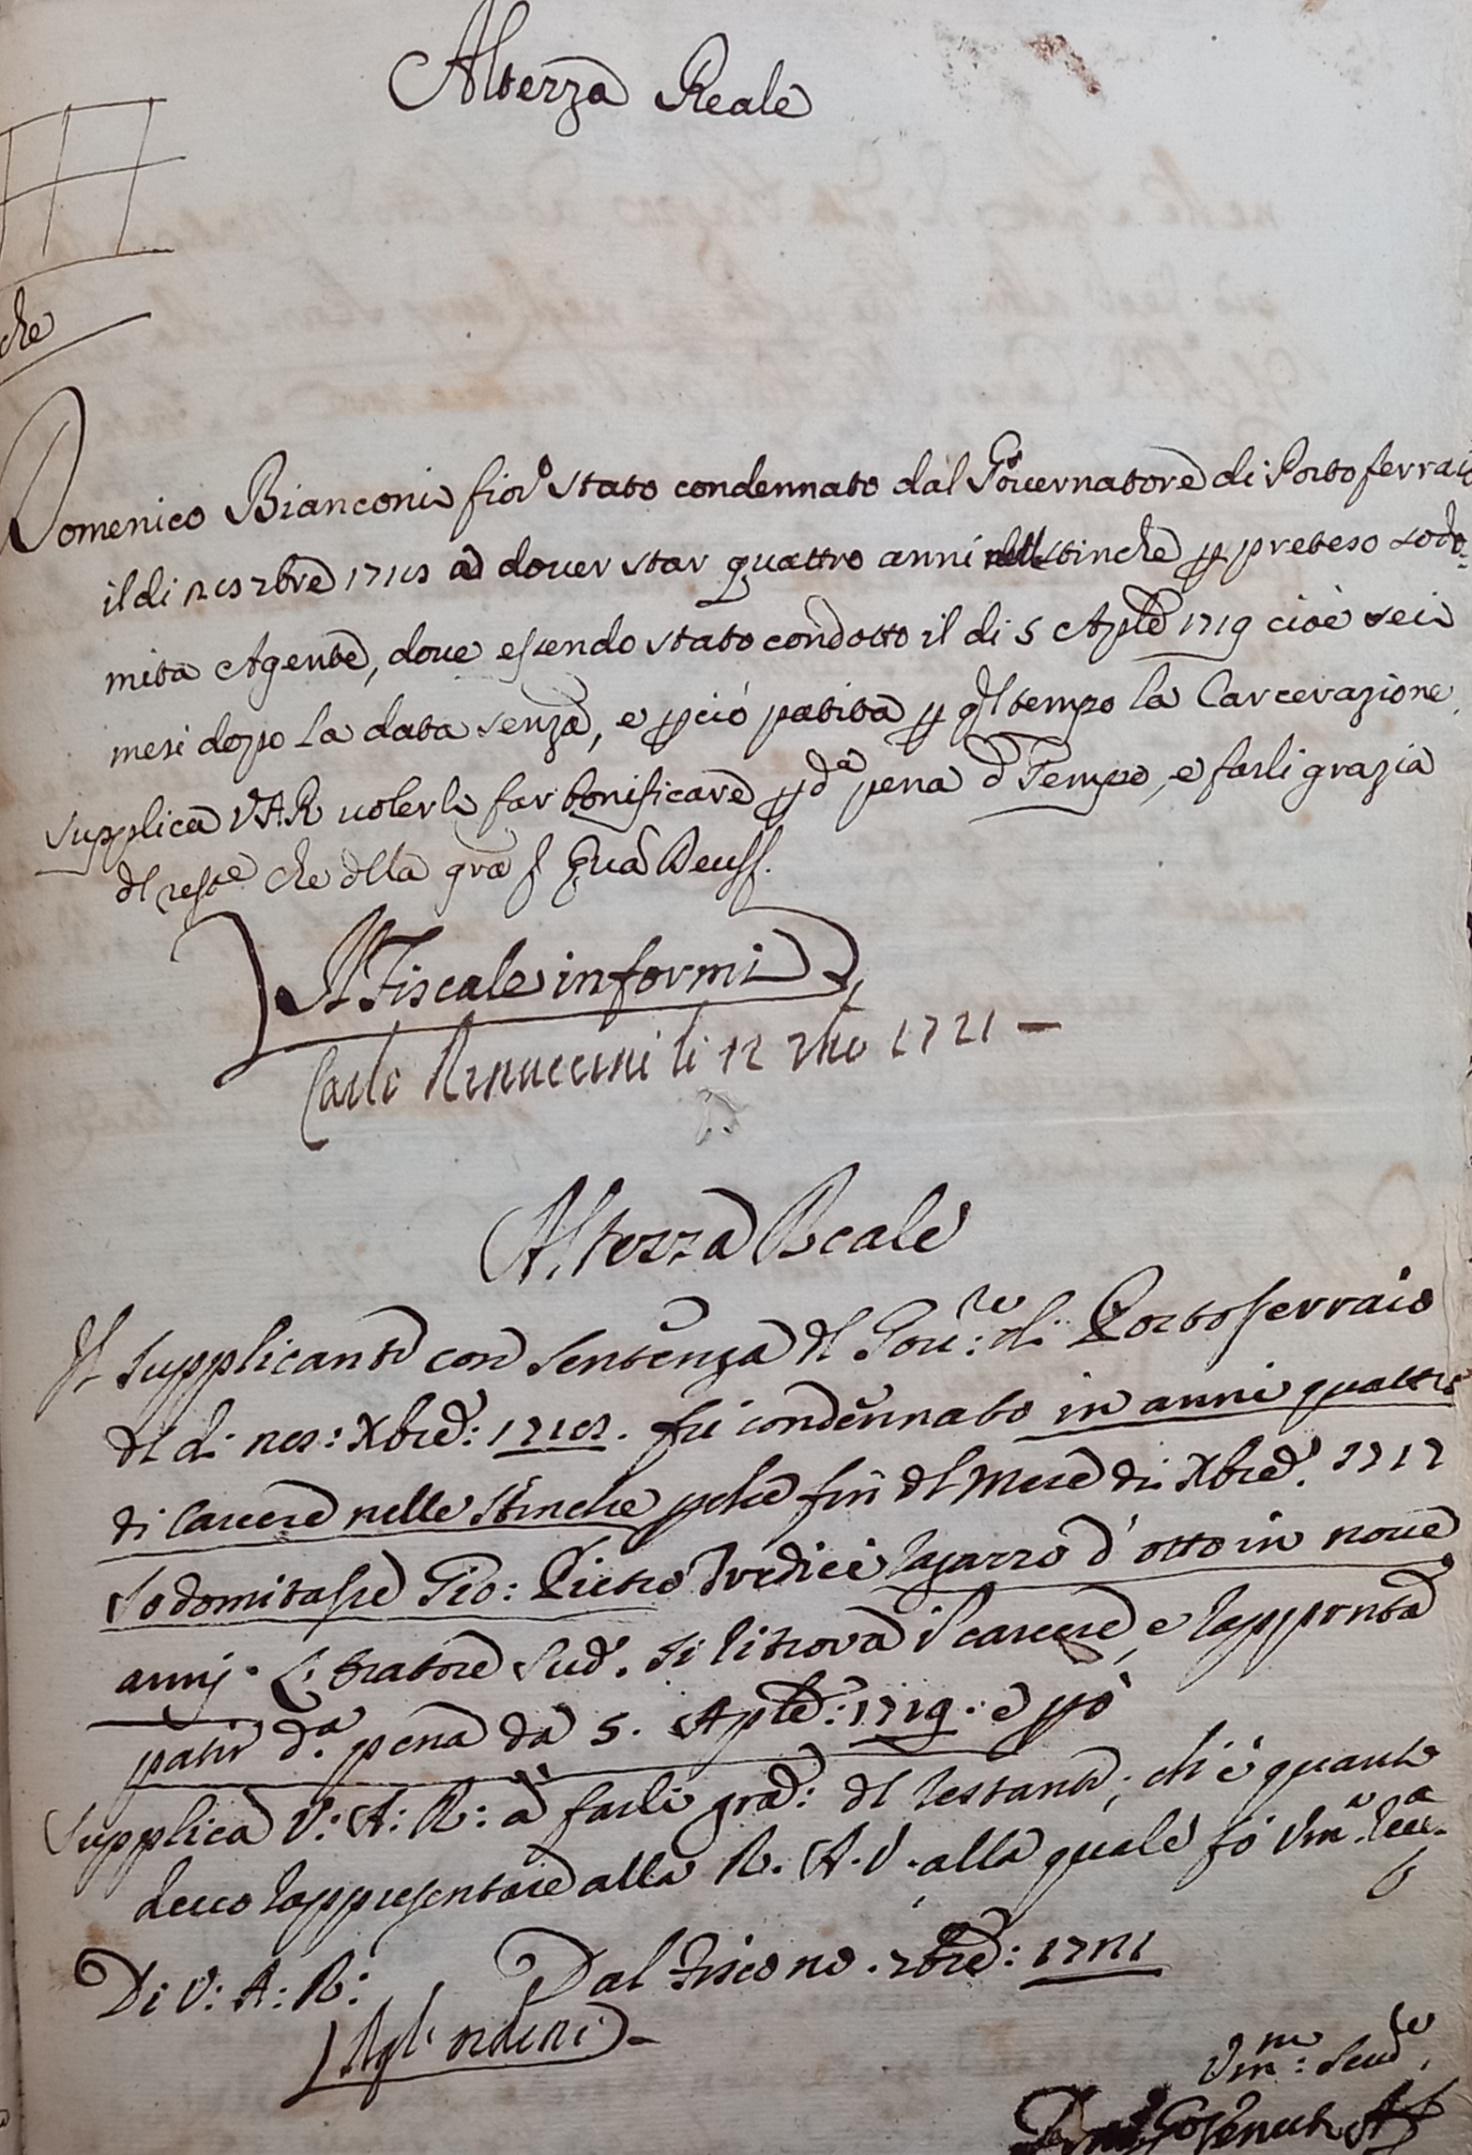 Altezza Reale
che
Domenico Bianconi fior.o stato condennato dal Governatore di Portoferraio
il di 7bre 1718 a dover star quattro anni nelle stinche p preteso sodo-
mita Agente, dove essendo stato condotto il di 5 Aple 1719 cioè sei
mesi dopo la data senza, e pciò patita p ql tempo la Carcerazione,
supplica V A R volerli far bonificare p da pena d Tempo, e farli grazia
dl reste che della gra Quã Deus
Il Fiscale informi
Carlo Rinuccini li 12 7bre 1721 —
Altezza Reale
Il supplicante con sentenza dl Gov.re di Portoferraio
dl di Xbre: 1718. fù condennato in anni quattro
di Carcere nelle stinche pche fin dl Mese di Xbre. 1717
sodomitasse Gio: Pietro ragazzo d'otto in nove
anni. Il Sud. si ritrova i carcere, e rappronta
patir d.a pena da 5. Aple: 1719: e pò
supplica V: A: R: à farli gra: dl restante; ch'è quanto
devo rappresentare alla R. A. V. alla quale fò Um.a Reve.a
Di V: A: R: Dal Fisco 7bre: 1721
Agl' ordini
Um.mo Serv.re